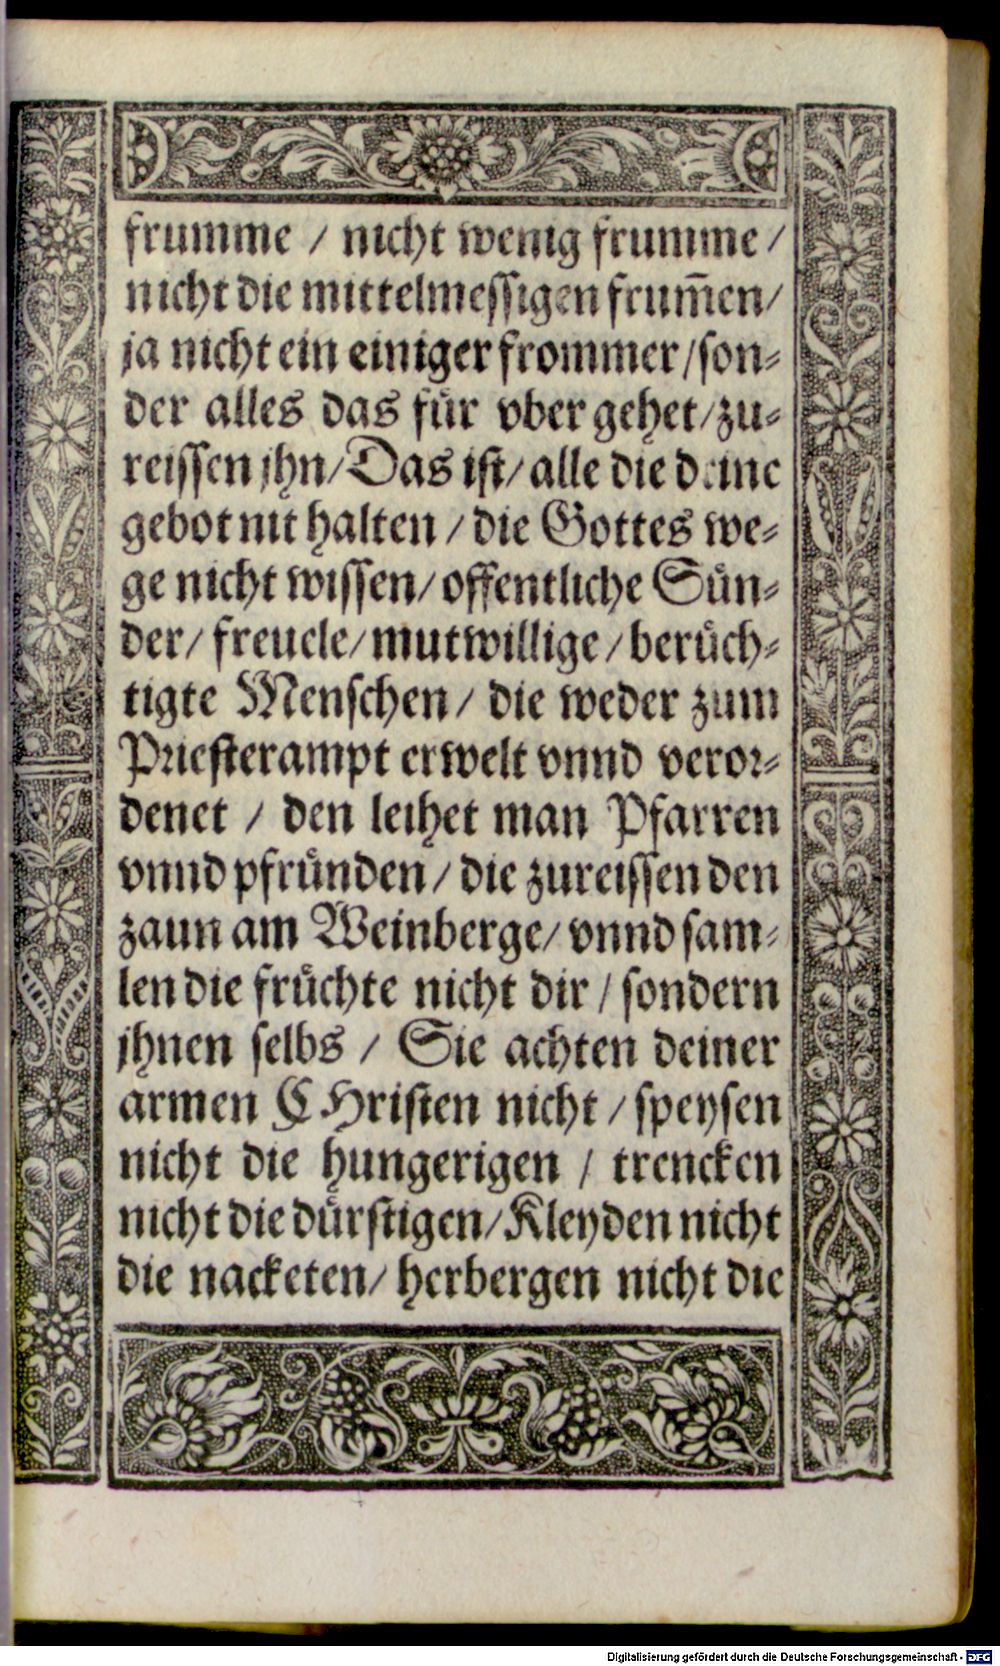 frumme / nicht wenig frumme /
nicht die mittelmessigen frum̃en/
ja nicht ein einiger frommer/son⸗
der alles das fuͤr vber gehet/zu⸗
reissen jhn/Das ist/ alle die deine
gebot nit halten / die Gottes we⸗
ge nicht wissen/ offentliche Suͤn⸗
der/ freuele/ mutwillige / beruͤch⸗
tigte Menschen / die weder zum
Priesterampt erwelt vnnd veror⸗
denet / den leihet man Pfarren
vnnd pfruͤnden / die zureissen den
zaun am Weinberge/ vnnd sam⸗
len die fruͤchte nicht dir / sondern
jhnen selbs / Sie achten deiner
armen CHristen nicht / speysen
nicht die hungerigen / trencken
nicht die duͤrstigen/Kleyden nicht
die nacketen/ herbergen nicht die
Digitalisierung gefördert durch die Deutsche Forschungsgemeinschaft - DFG